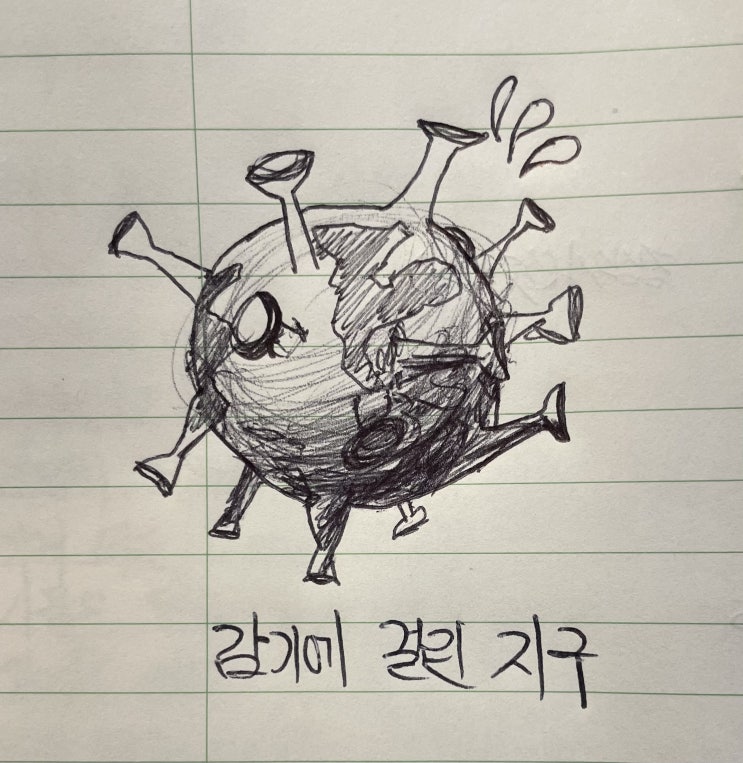 감기에 걸린 지구